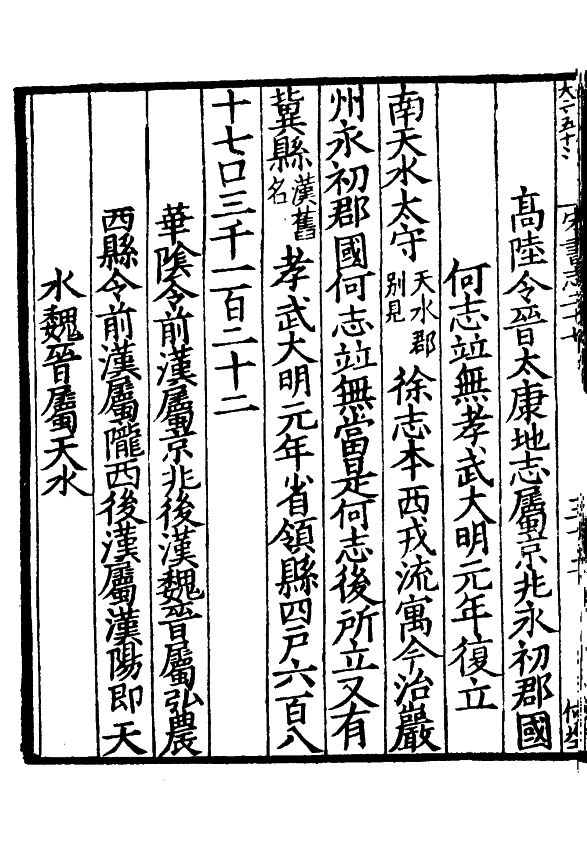 高陸令晉太康地志屬京兆永初郡國
何志竝無孝武大明元年復立
南天水太守天水郡別見徐志本西戎流寓今治巖
州永初郡國何志竝無當是何志後所立又有
冀縣漢舊名孝武大明元年省領縣四戸六百八
十七口三千一百二十二
華陰令前漢屬京兆後漢魏晉屬弘農
西縣令前漢屬隴西後漢屬漢陽即天
水魏晉屬天水